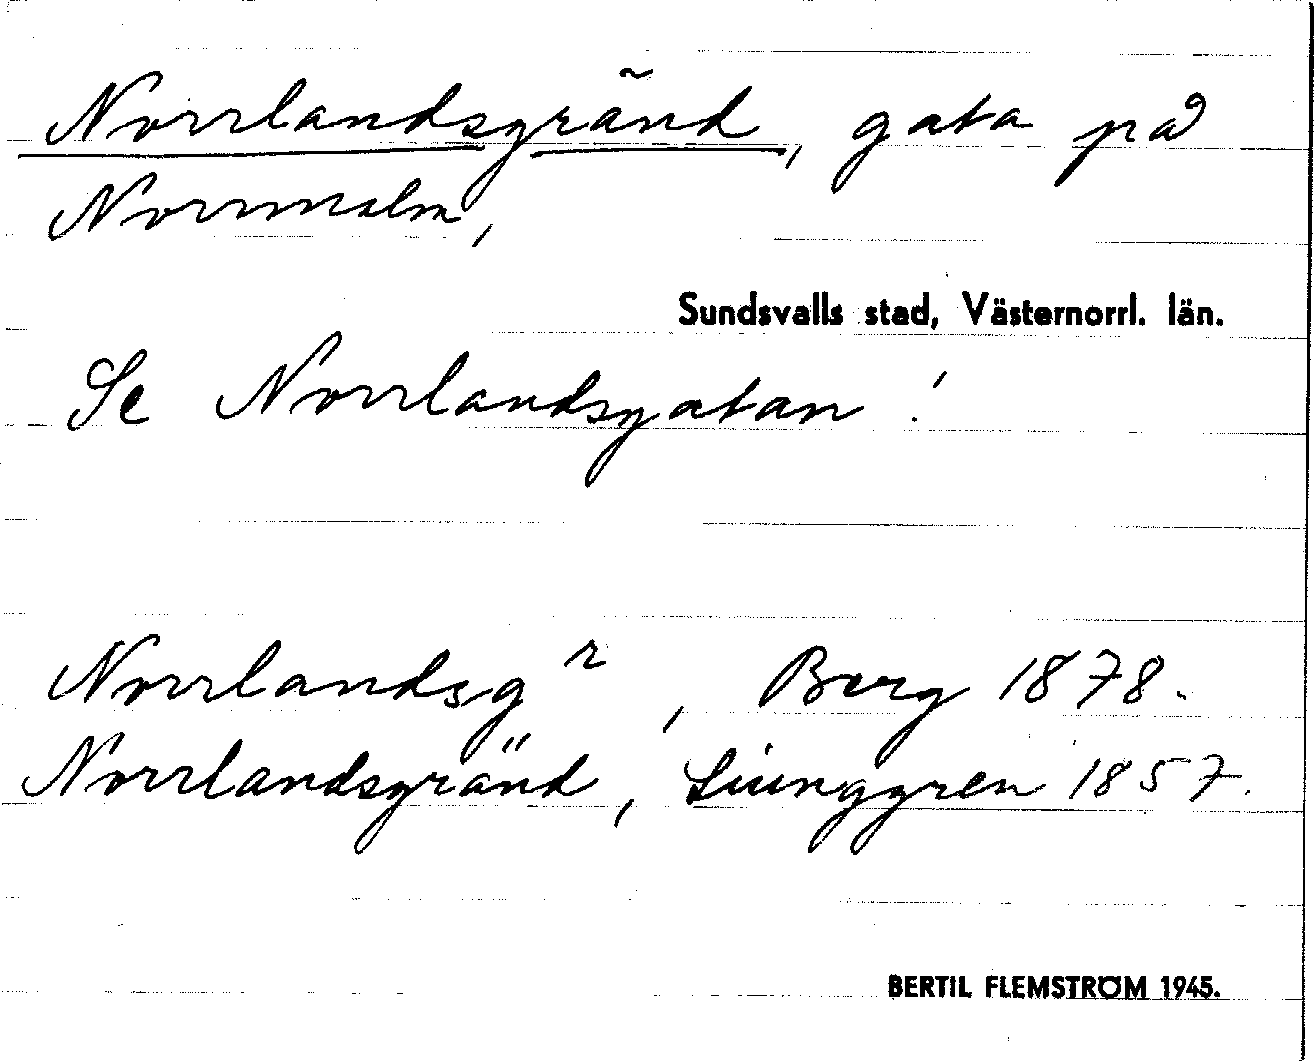 Norrlandsgränd, gata på
Norrmalm,
Sundsvalls stad, Västernorrl. län.
Se Norrlandsgatan!
Norrlandsgr, Borg 1878.
Norrlandsgränd, Liunggren 1857.
BERTIL FLEMSTRÖM 1945.